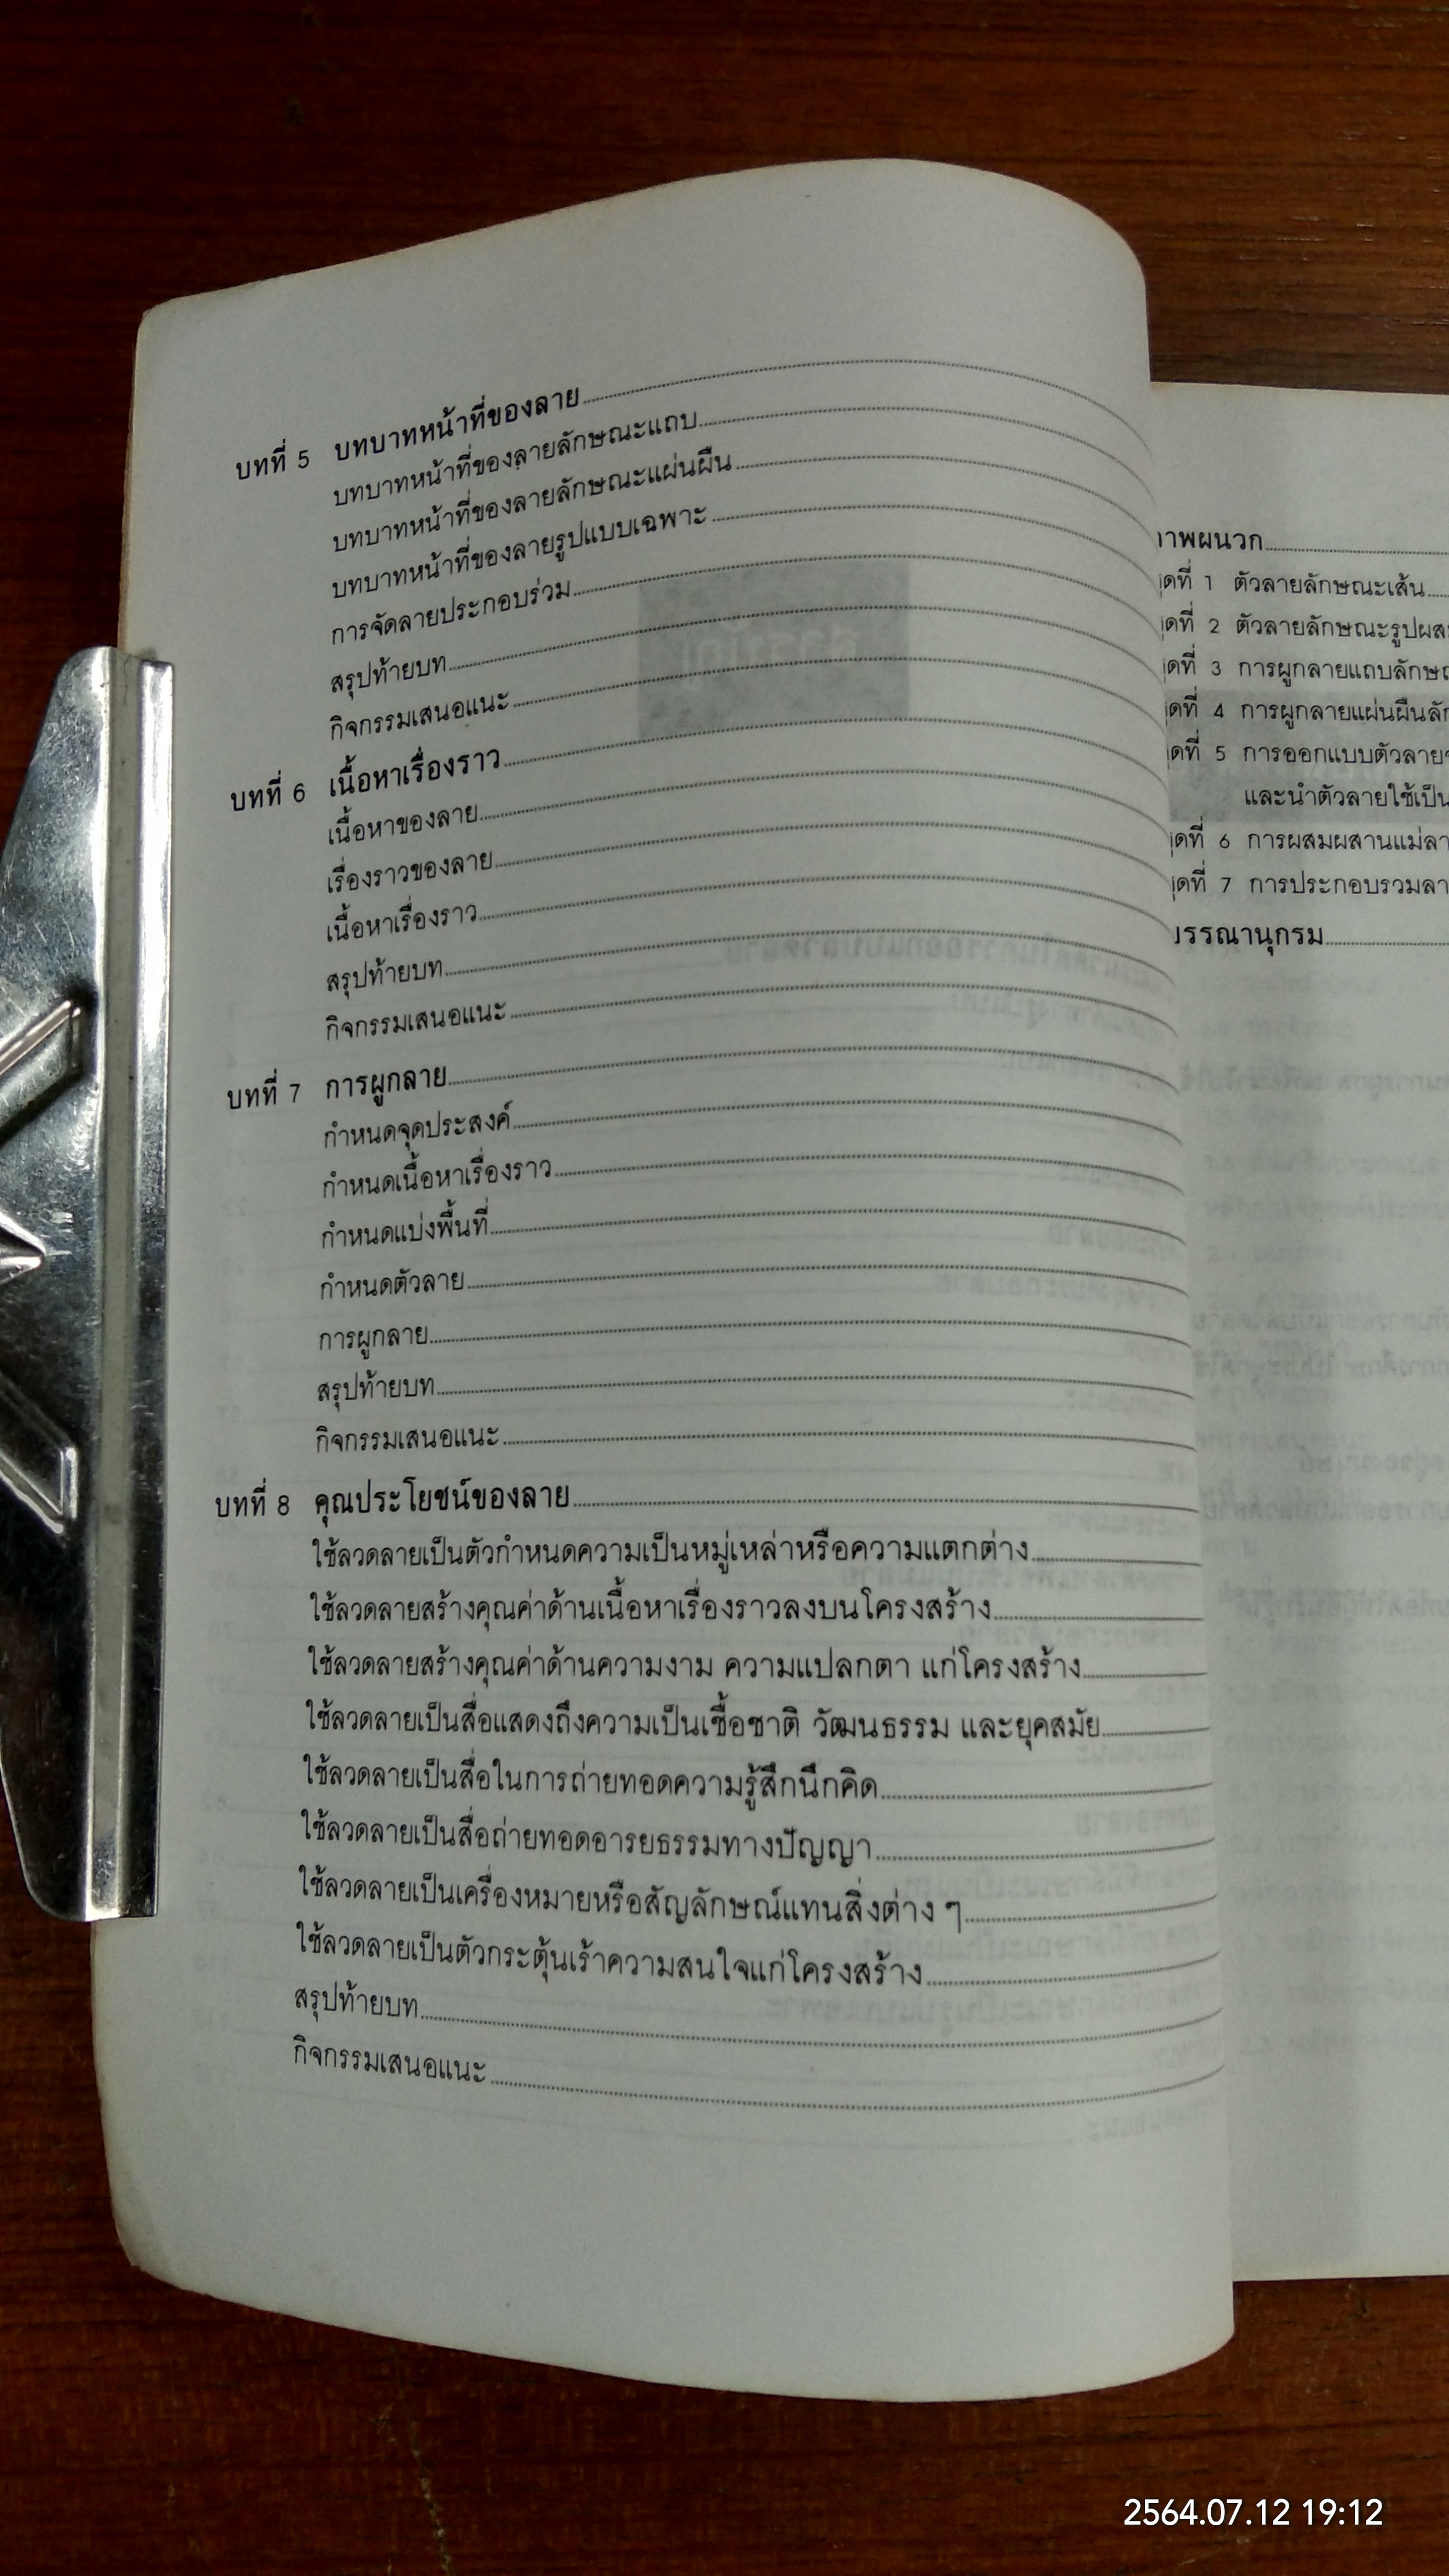 บทที่ 5 บทบาทหน้าที่ของลาย
บทบาทหน้าที่ของลายลักษณะแถบ
บทบาทหน้าที่ของลายลักษณะแผ่นผืน
บทบาทหน้าที่ของลายรูปแบบเฉพาะ
การจัดลายประกอบร่วม
สรุปท้ายบท
กิจกรรมเสนอแนะ
บทที่ 6 เนื้อหาเรื่องราว
เนื้อหาของลาย
เรื่องราวของลาย
เนื้อหาเรื่องราว
สรุปท้ายบท
กิจกรรมเสนอแนะ
บทที่ 7 การผูกลาย
กำหนดจุดประสงค์
กำหนดเนื้อหาเรื่องราว
กำหนดแบ่งพื้นที่
กำหนดตัวลาย
การผูกลาย
สรุปท้ายบท
กิจกรรมเสนอแนะ
บทที่ 8 คุณประโยชน์ของลาย
ใช้ลวดลายเป็นตัวกำหนดความเป็นหมู่เหล่าหรือความแตกต่าง
ใช้ลวดลายสร้างคุณค่าด้านเนื้อหาเรื่องราวลงบนโครงสร้าง
ใช้ลวดลายสร้างคุณค่าด้านความงาม ความแปลกตา แก่โครงสร้าง
ใช้ลวดลายเป็นสื่อแสดงถึงความเป็นเชื้อชาติ วัฒนธรรม และยุคสมัย
ใช้ลวดลายเป็นสื่อในการถ่ายทอดความรู้สึกนึกคิด
ใช้ลวดลายเป็นสื่อถ่ายทอดอารยธรรมทางปัญญา
ใช้ลวดลายเป็นเครื่องหมายหรือสัญลักษณ์แทนสิ่งต่าง ๆ
ใช้ลวดลายเป็นตัวกระตุ้นเร้าความสนใจแก่โครงสร้าง
สรุปท้ายบท
กิจกรรมเสนอแนะ
าพผนวก
ดที่ 1 ตัวลายลักษณะเส้น
ดที่ 2 ตัวลายลักษณะรูปผส
ดที่ 3 การผูกลายแถบลักษณ
ดที่ 4 การผูกลายแผ่นผืนลัก
ดที่ 5 การออกแบบตัวลาย
และนำตัวลายใช้เป็น
ดที่ 6 การผสมผสานแม่ลา
ดที่ 7 การประกอบรวมลา
บรรณานุกรม
2564.07.12 19:12